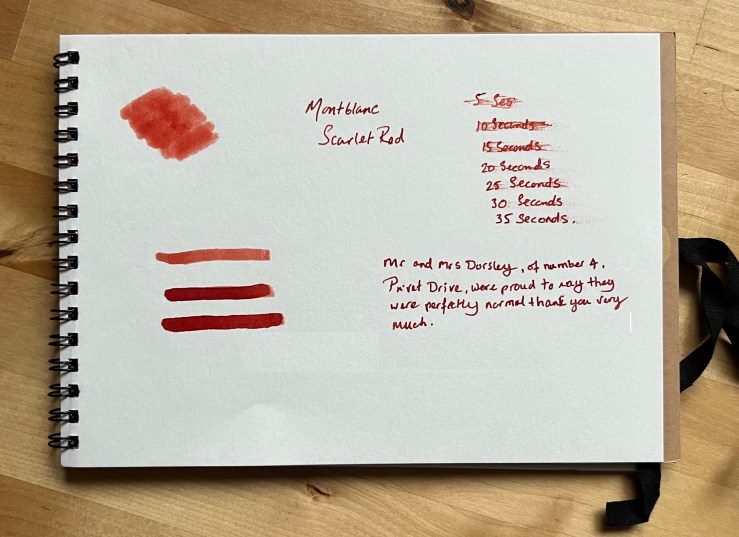 Montblanc
Scarlet Red
5 Ses
10 Seconds
15 Seconds
20 Seconds
25 Seconds
30 Seconds
35 Seconds.
Mr and Mrs Dorsley, of number 4,
Privet Drive, were proud to say they
were perfectly normal thank you very
much.